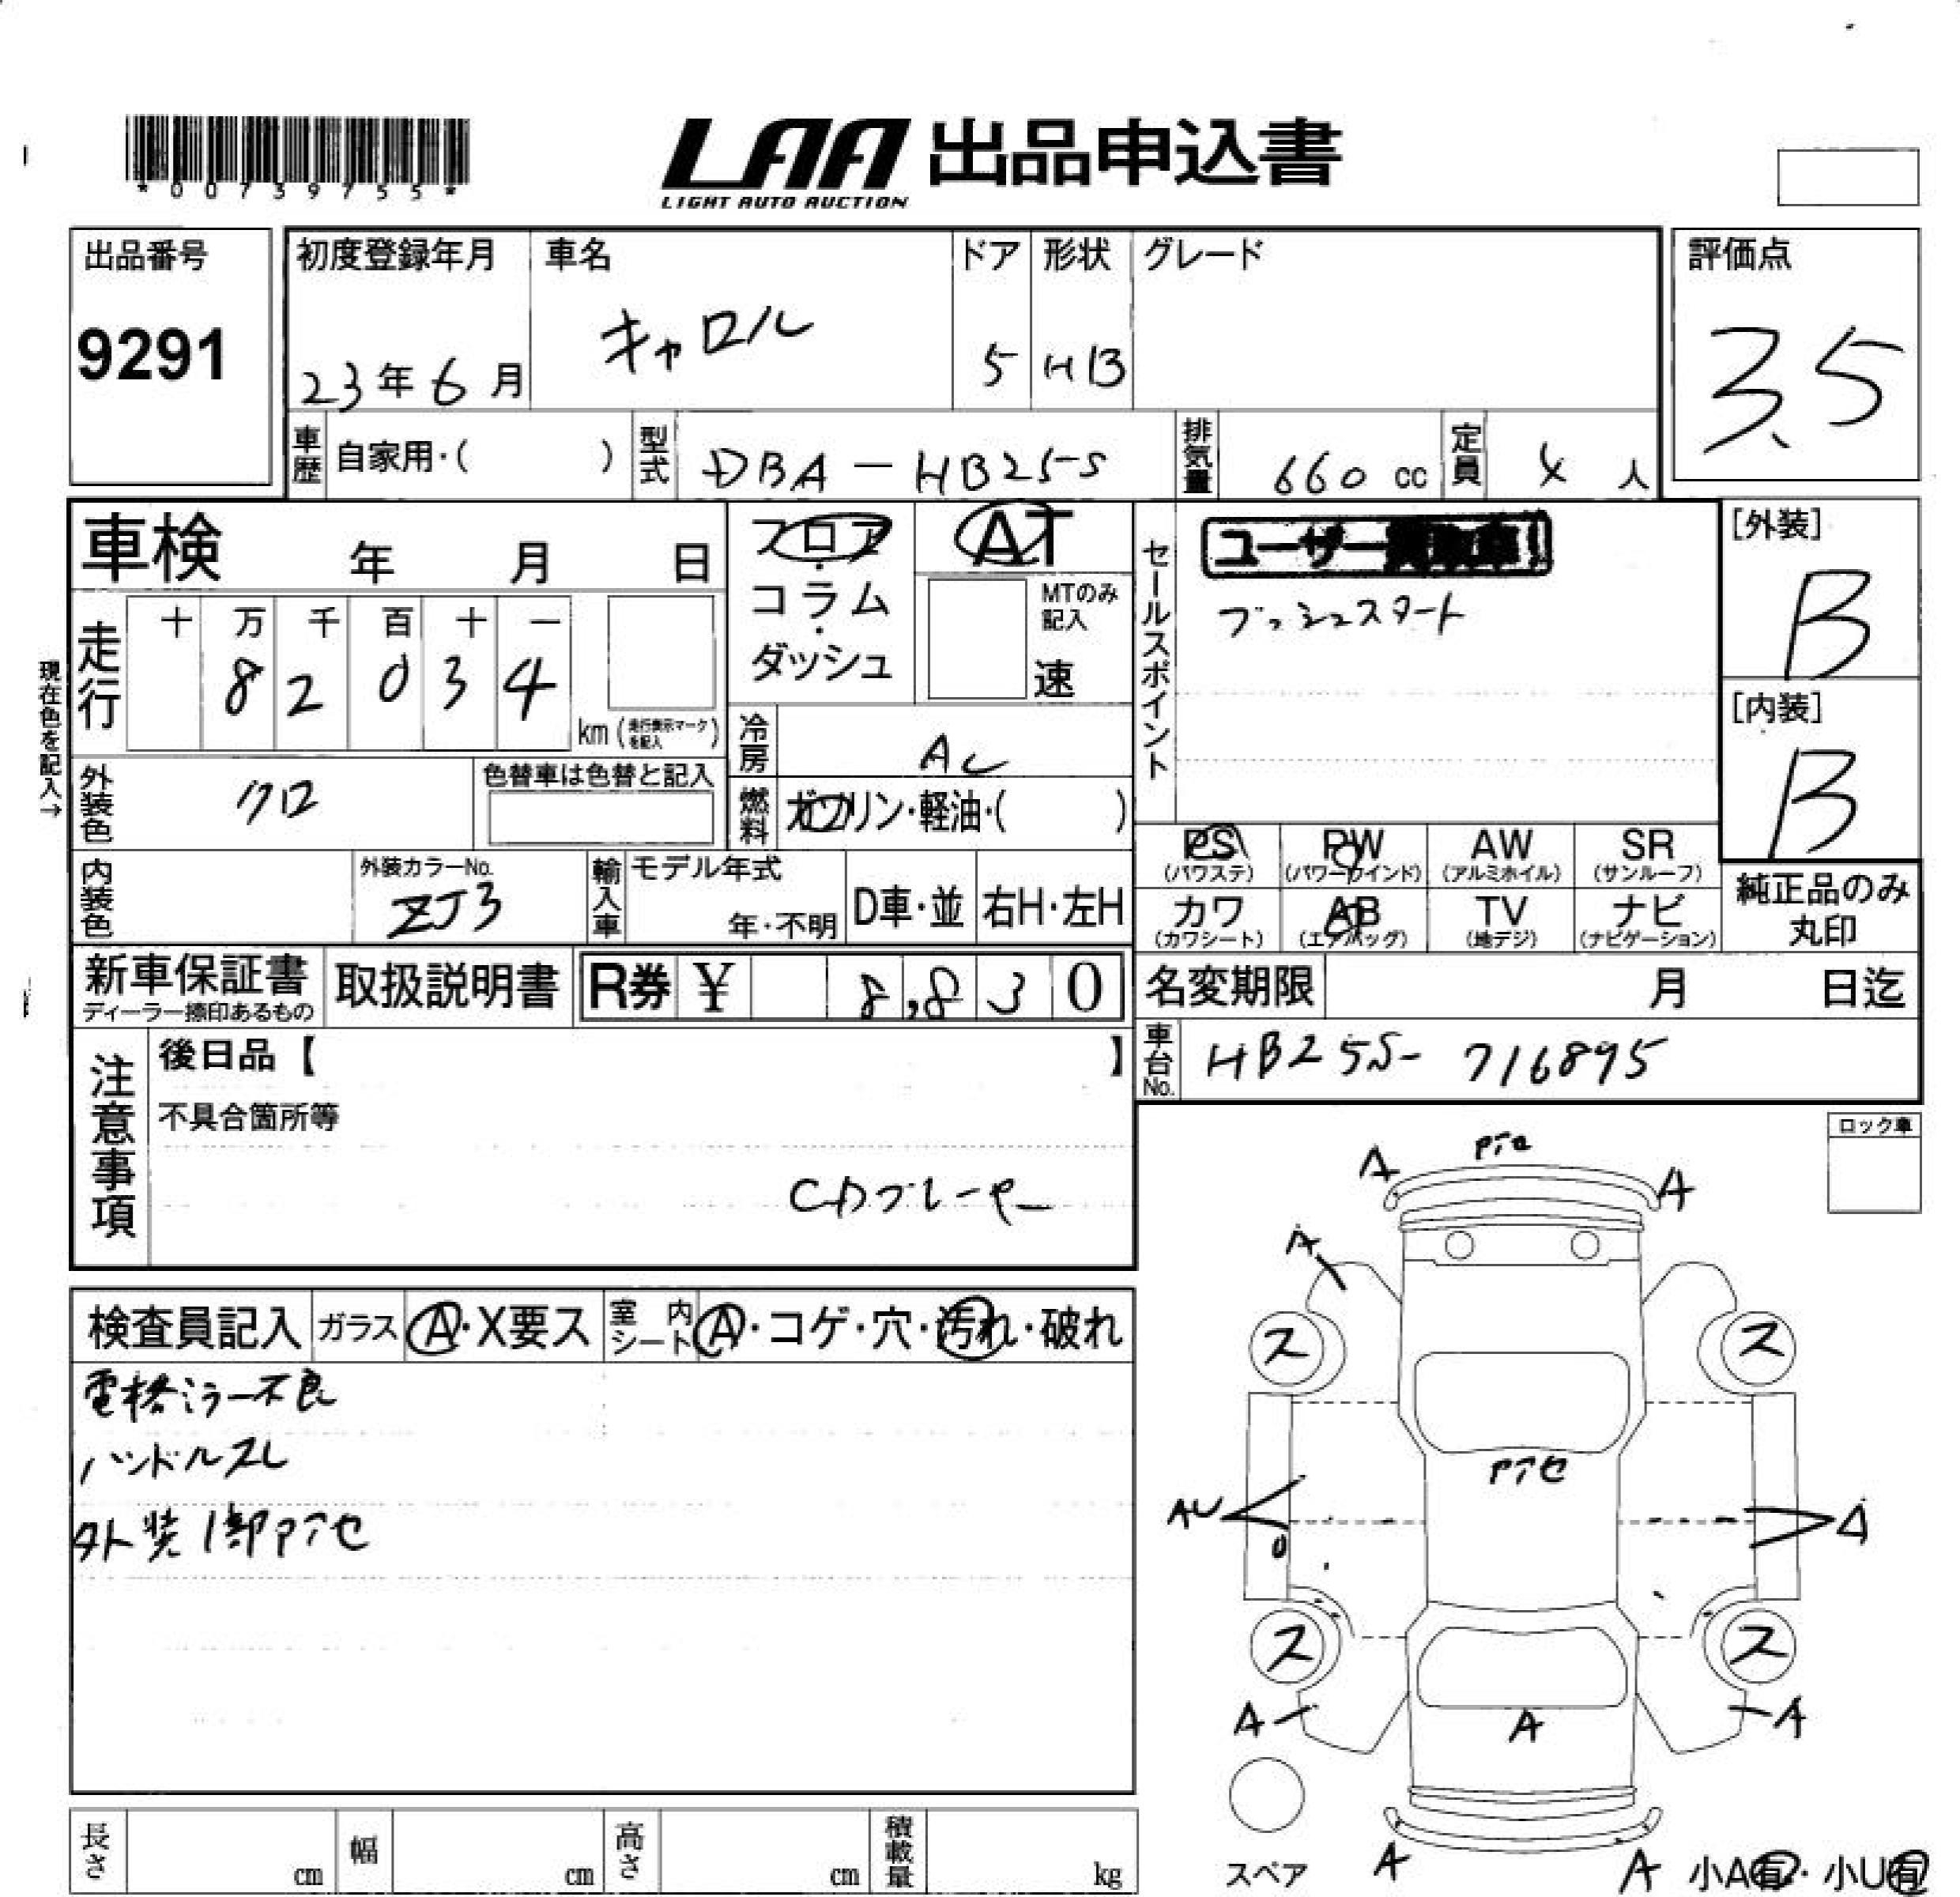 *00739755*
LAA 出品申込書
LIGHT AUTO AUCTION
出品番号
9291
初度登録年月
23年6月
車名
キャロル
ドア
5
形状
HB
グレード
評価点
3.5
車歴 自家用・( )
型式 DBA-HB25S
排気量 660 cc
定員 4 人
車検 年 月 日
走行
十 万 千 百 十 一
8 2 0 3 4
km (走行表示マークを記入)
現在色を記入→
フロア・コラム・ダッシュ
AT
MTのみ記入
速
冷房 AC
燃料 ガソリン・軽油・( )
外装色 クロ
色替車は色替と記入
内装色
外装カラーNo.
ZJ3
輸入車
モデル年式
年・不明
D車・並
右H・左H
セールスポイント
ユーザー買取車!
プッシュスタート
[外装]
B
[内装]
B
PS (パワステ)
PW (パワーウインド)
AW (アルミホイル)
SR (サンルーフ)
カワ (カワシート)
AB (エアバッグ)
TV (地デジ)
ナビ (ナビゲーション)
純正品のみ丸印
新車保証書
ディーラー捺印あるもの
取扱説明書
R券 ¥ 8,830
名変期限 月 日迄
車台No. HB25S-716895
注意事項
後日品【 】
不具合箇所等
CDプレーヤー
ロック車
検査員記入
ガラス A・X要ス
室内シート A・コゲ・穴・汚れ・破れ
電格ミラー不良
ハンドルスレ
外装1部アセ
アセ
A
A
A
ス
ス
アセ
AU
A
ス
ス
A
A
A
スペア
A
A
小A有・小U有
長さ cm
幅 cm
高さ cm
積載量 kg